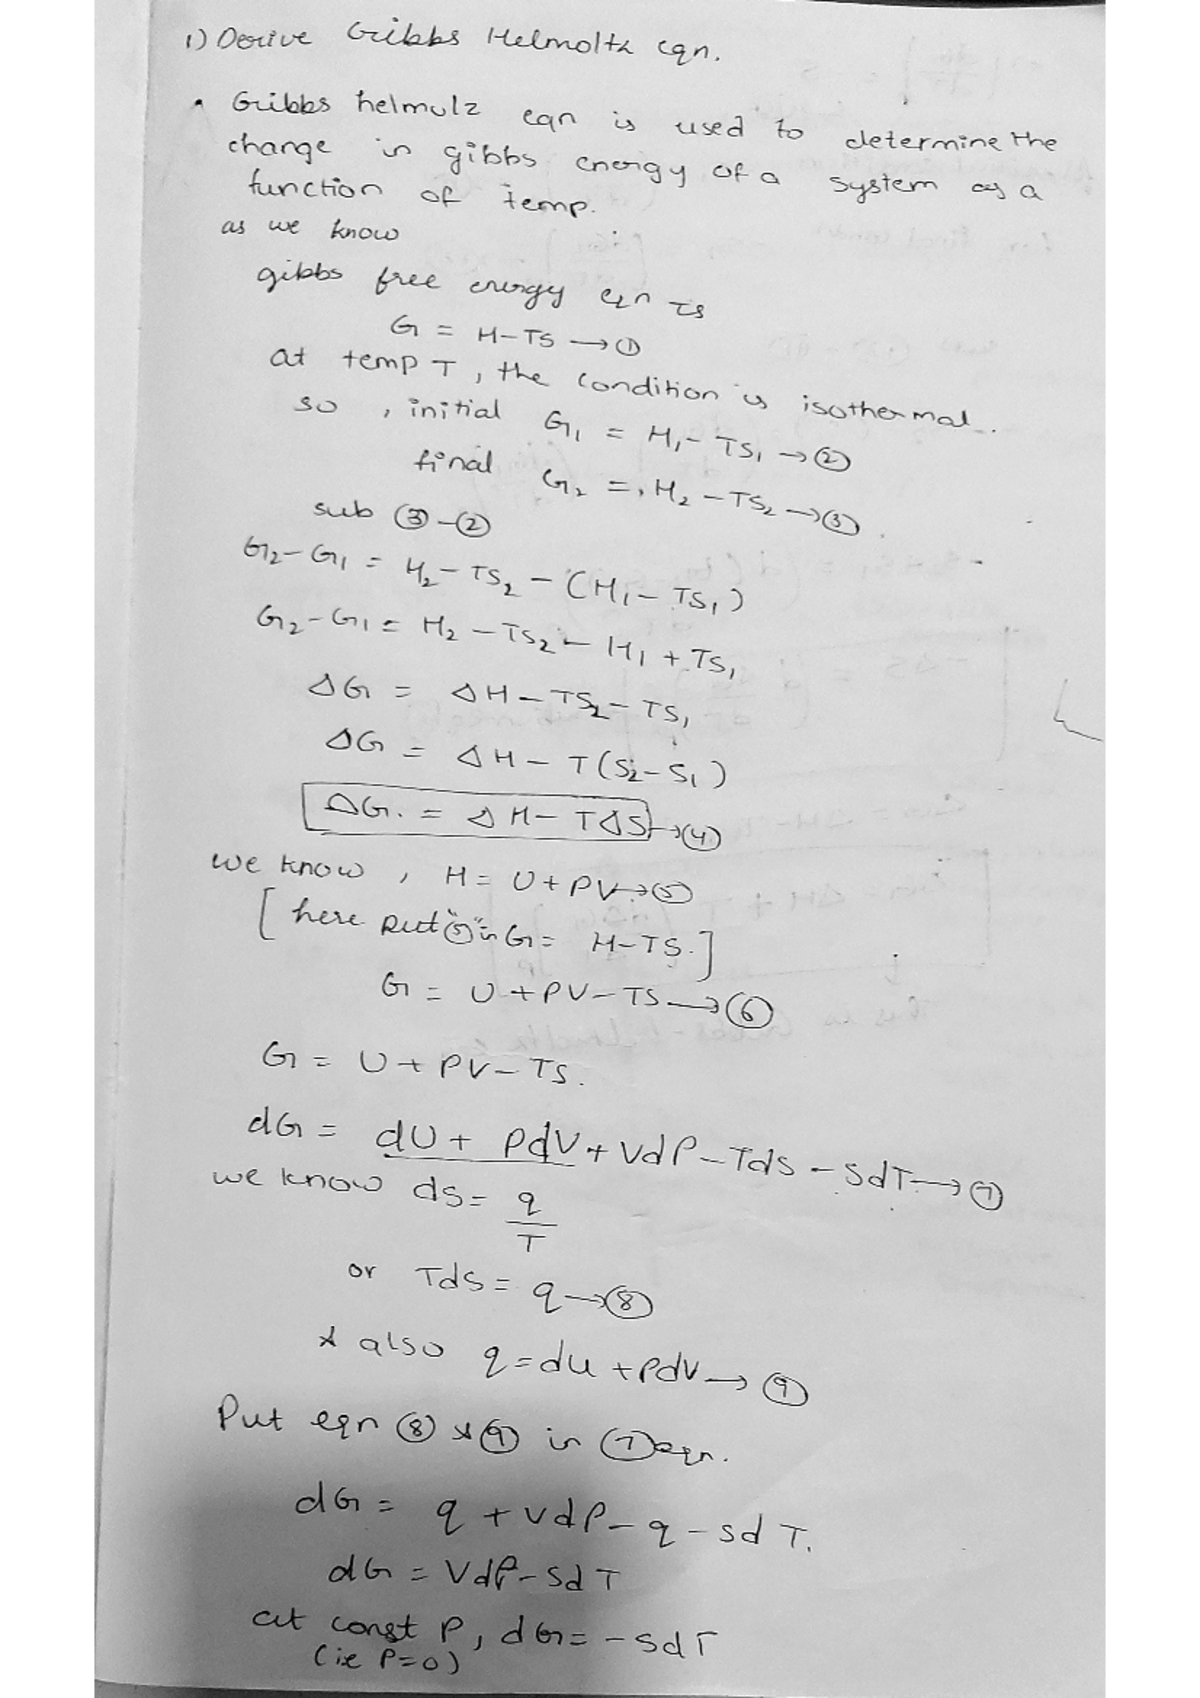 1) Derive Gibbs Helmoltz eqn.
• Gibbs helmulz eqn is used to determine the
change in gibbs energy of a system as a
function of temp.
as we know
gibbs free energy eqn is
G = H-TS → ①
at temp T, the condition is isothermal.
so, initial G₁ = H₁- TS₁ → ②
final G₂ = H₂ - TS₂ → ③
sub ③-②
G₂-G₁ = H₂-TS₂ - (H₁- TS₁)
G₂-G₁ = H₂ - TS₂ - H₁ + TS₁
ΔG = ΔH - TS₂ - TS₁
ΔG = ΔH - T(S₂-S₁)
ΔG. = ΔH - TΔS → ④
we know, H = U+PV → ⑤
[here put "⑤" in G = H-TS.]
G = U+PV-TS → ⑥
G = U + PV - TS.
dG = dU + PdV + VdP - TdS - SdT → ⑦
we know dS = q
T
or TdS = q → ⑧
& also q = du + pdv → ⑨
Put eqn ⑧ & ⑨ in ⑦ eqn.
dG = q + vdP - q - sdT.
dG = VdP - SdT
at const P, dG = - SdT
(ie P=0)